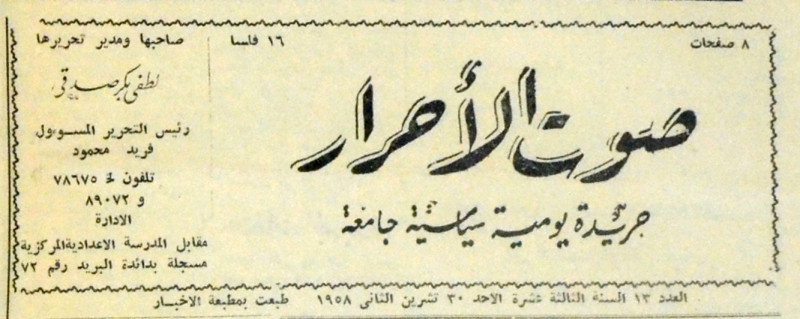 ٨ صفحات
١٦ فلسا
صوت الأحرار
جريدة يومية سياسية جامعة
صاحبها ومدير تحريرها
لطفي بكر صدقي
رئيس التحرير المسوءول
فريد محمود
تلفون خ ٧٨٦٧٥
و ٨٩٠٧٢
الادارة
مقابل المدرسة الاعدادية المركزية
مسجلة بدائدة البريد رقم ٧٢
العدد ١٣ السنة الثالثة عشرة الاحد ٣٠ تشرين الثانى ١٩٥٨ طبعت بمطبعة الاخبار